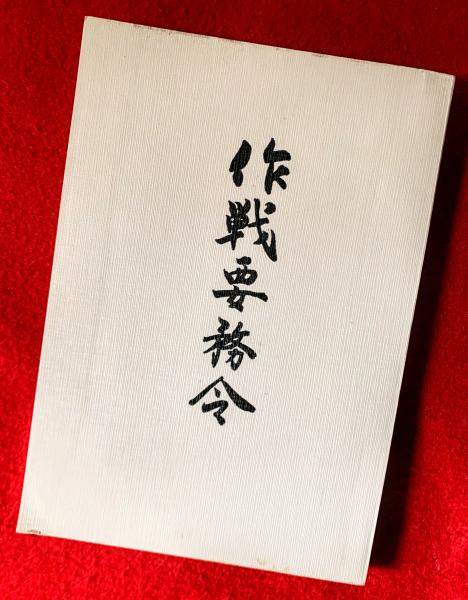 作戦要務令